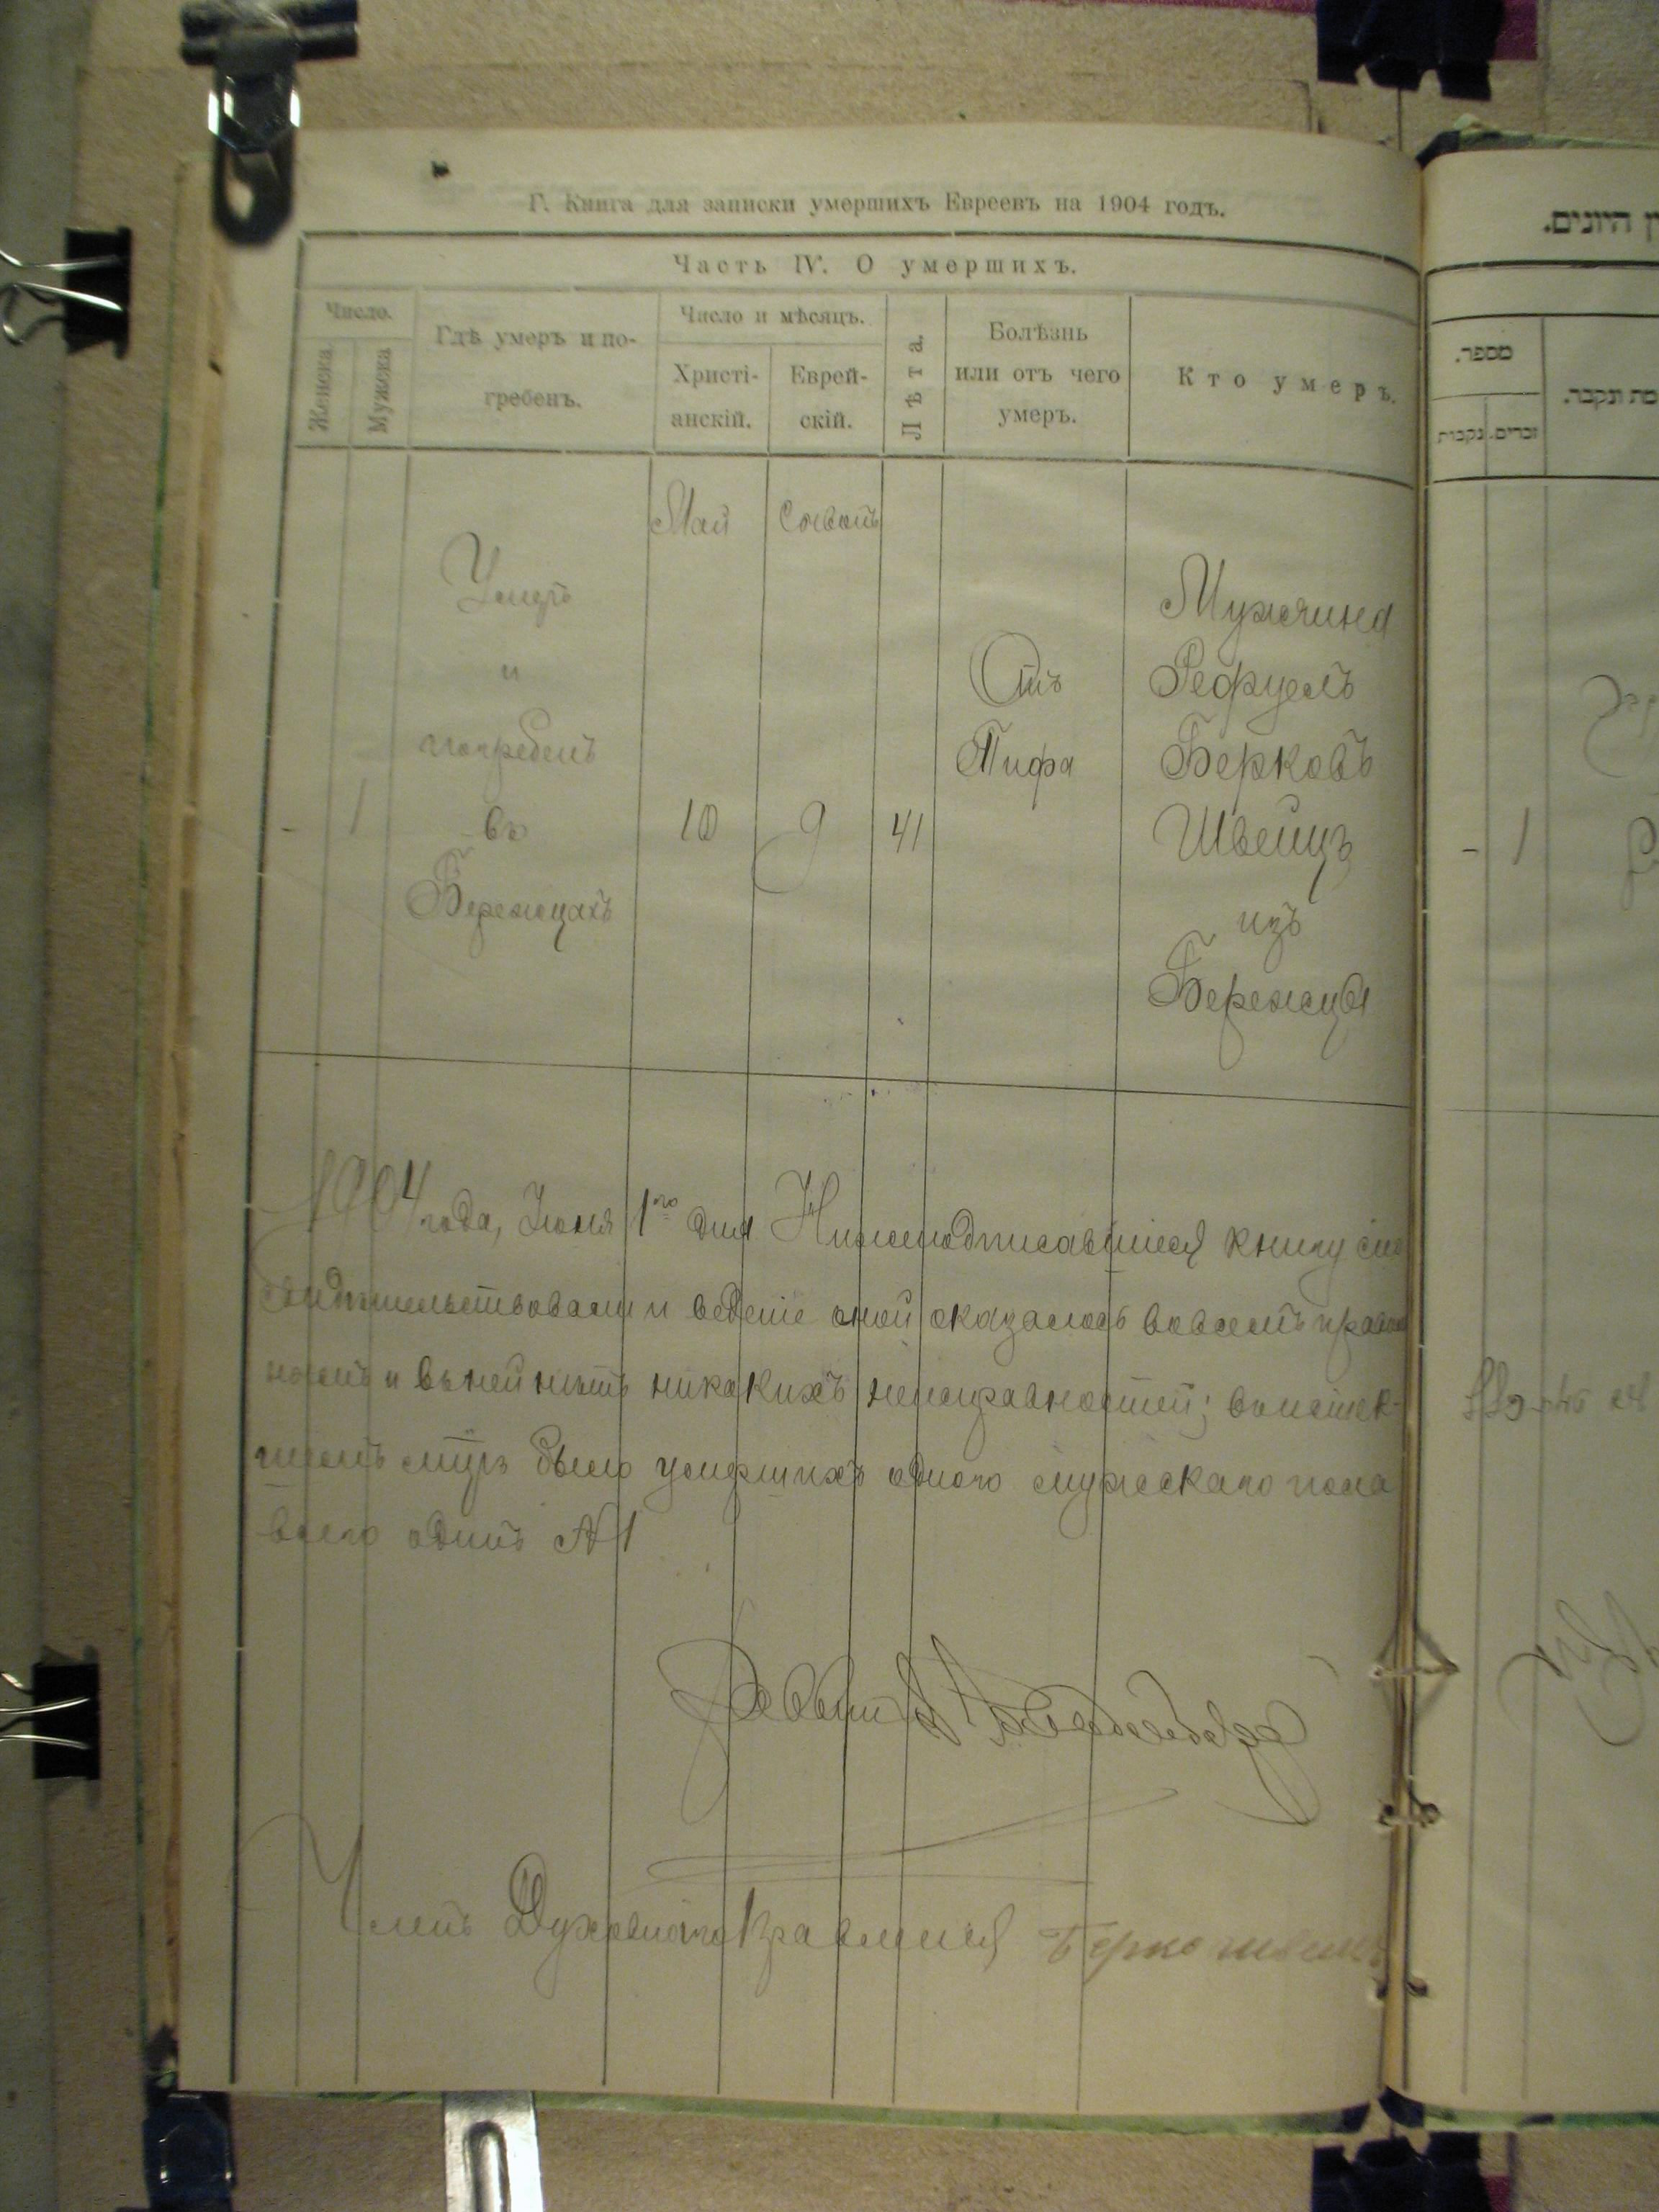 Г. Книга для записки умершихъ Евреевъ на 1904 годъ.
Часть IV. О умершихъ.
Число.
Женска
Мужеска
Гдѣ умеръ и по-
гребенъ.
Число и мѣсяцъ.
Христі-
анскій.
Еврей-
скій.
Лѣта.
Болѣзнь
или отъ чего
умеръ.
Кто умеръ.
Май
Сивонъ
Умеръ
и
погребенъ
въ
Бережцахъ
- 1
10
9
41
Отъ
Тифа
Мужчина
Рефуелъ
Берковъ
Швецъ
изъ
Бережцы
1904 года, Июня 1го дня Нижеподписавшиеся книгу сию
свидѣтельствовали и ведение оной оказалось вовсемъ
и въ ней нѣтъ никакихъ неисправностей; въ истек-
шемъ м-цѣ было умершихъ одного мужескаго пола
всего одинъ №1
Раввинъ
Членъ Духовного Правления Берко
ין היונים.
מספר.
זכרים.
נקבות
מת ונקבר.
- 1